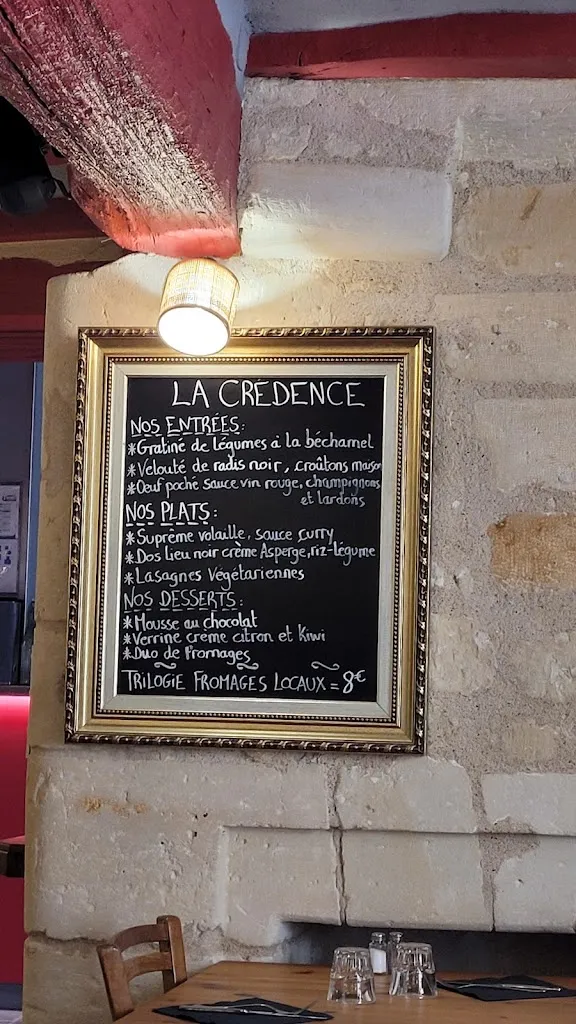 LA CRÉDENCE
NOS ENTRÉES:
*Gratiné de légumes à la béchamel
*Velouté de radis noir, croûtons maison
*Oeuf poché sauce vin rouge, champignons
et lardons
NOS PLATS:
*Suprême volaille, sauce curry
*Dos lieu noir crème Asperge, riz-légume
*Lasagnes Végétariennes
NOS DESSERTS:
*Mousse au chocolat
*Verrine crème citron et Kiwi
*Duo de Fromages
TRILOGIE FROMAGES LOCAUX = 8€